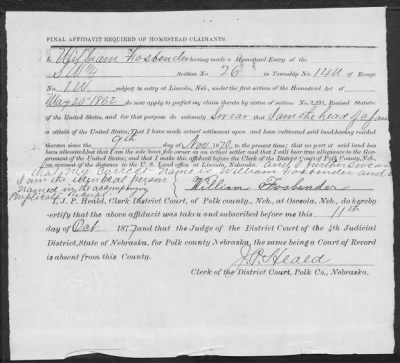 FINAL AFFIDAVIT REQUIRED OF HOMESTEAD CLAIMANTS.
I, William Fosbender having made a Homestead Entry of the
S W 4 Section No. 26 in Township No. 14 N of Range
No. 1 W subject to entry at Lincoln, Neb., under the first section of the Homestead Act of
May 20th 1862 do now apply to perfect my claim thereto by virtue of section No. 2,291, Revised Statutes
of the United States, and for that purpose do solemnly Swear that I am the head of a fam
a citizen of the United States; That I have made actual settlement upon and have cultivated said land, having resided
thereon since the 9th day of Nov 1870 to the present time; that no part of said land has
been alienated, but that I am the sole bona fide owner as an actual settler and that I will bear true allegiance to the Gov-
ernment of the United States; and that I make this affidavit before the Clerk of the District Court of Polk County, Neb.,
at the U. S. Land office at Lincoln, Nebraska. And I further swear
that my correct name is William Fosbender and
I am the identical person
named in the accompanying
Duplicate Receipt
William Fosbender
I, J. P. Heald, Clerk District Court, of Polk county, Neb., at Osceola, Neb., do hereby
certify that the above affidavit was taken and subscribed before me this 11th
day of Oct 1877 and that the Judge of the District Court of the 4th Judicial
District, State of Nebraska, for Polk county Nebraska, the same being a Court of Record
is absent from this County.
J. P. Heald
Clerk of the District Court, Polk Co., Nebraska.